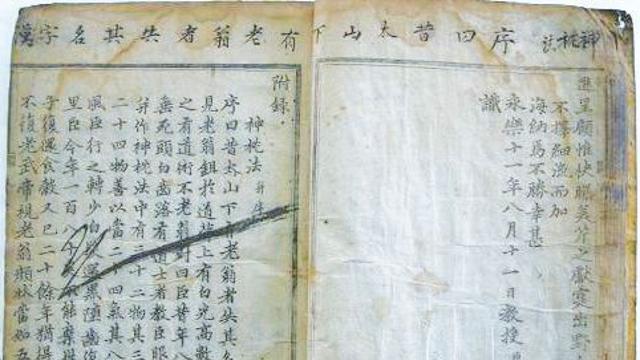 神枕法
序曰昔太山下有老翁者失其名字漢
進呈願惟快睹美芹之獻寔出野
不擇細流而加
海納焉不勝幸甚
永樂十一年八月十一日教授
識
附錄
神枕法
序曰昔太山下有老翁者失其名
見老翁鉏於道 上有白光高數
之有道術不老翁對曰臣昔年八
垂死頭白齒落有道士者教臣服
并作神枕法中有三十二物其三
二十四物善以當二十四氣其八
風臣行之轉少白 還黑墮齒復
里臣今年一百八十 能棄世
子復還食穀又已二十餘年猶得
不復老武帝視老翁頻狀當如五